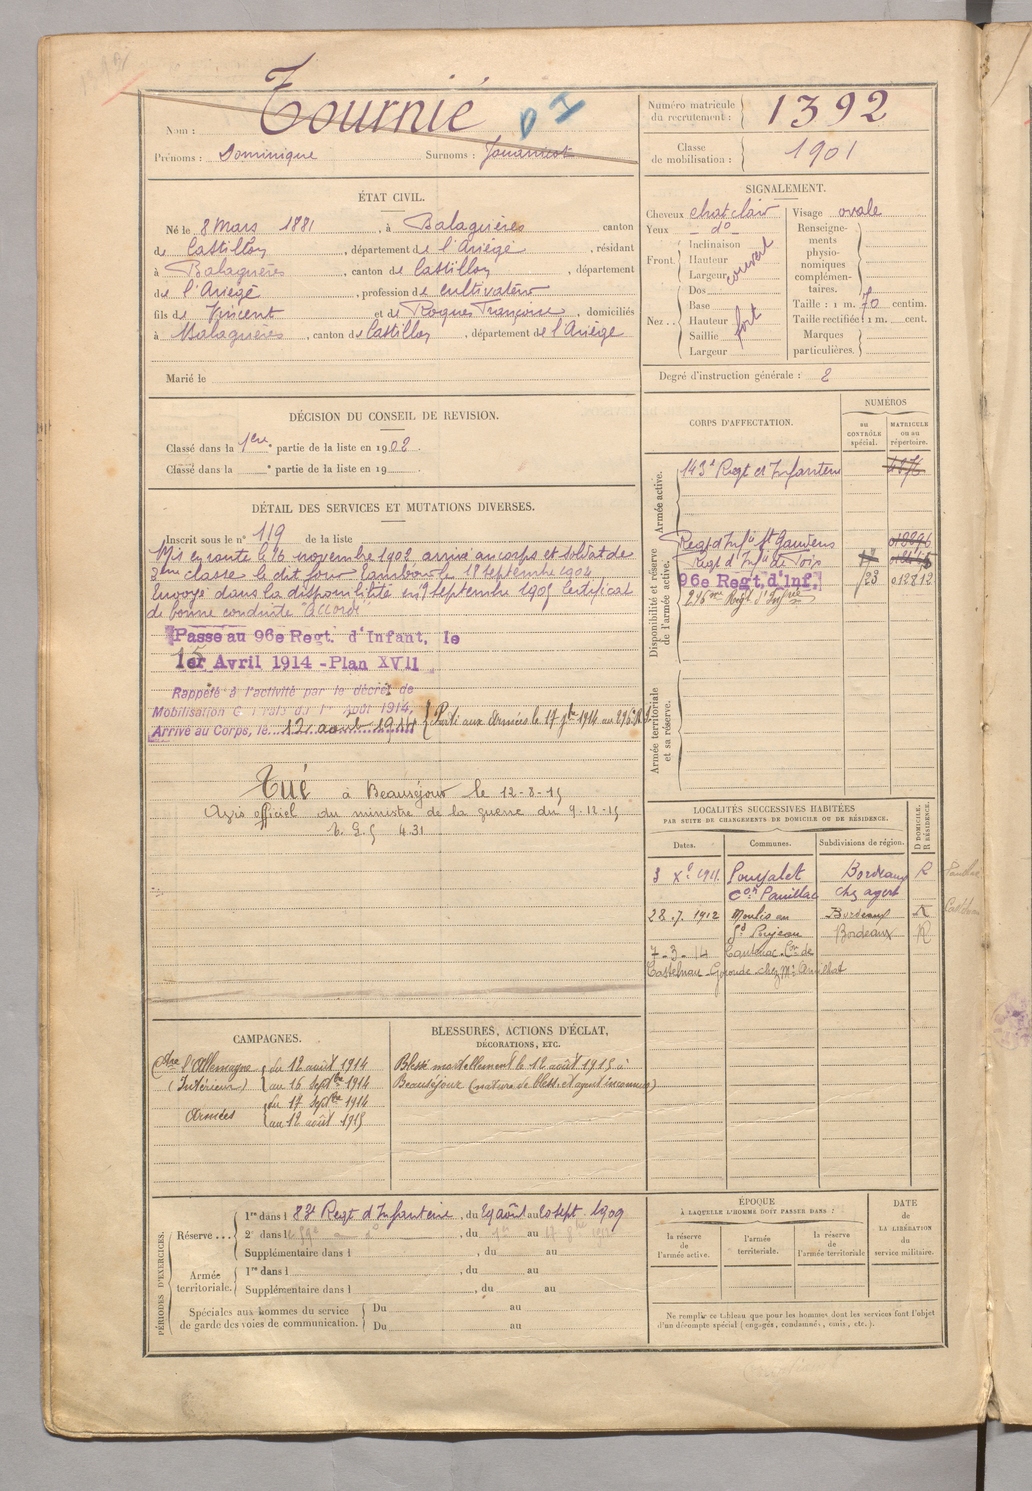 Nom : Tournié
Prénoms : Dominique Surnoms : Jouanicot
Numéro matricule du recrutement : 1392
Classe de mobilisation : 1901
ÉTAT CIVIL.
Né le 8 Mars 1881, à Balaguères canton
de Castillon, département de l'Ariège, résidant
à Balaguères, canton de Castillon, département
de l'Ariège, profession de cultivateur
fils de Vincent et de Roques Françoise, domiciliés
à Balaguères, canton de Castillon, département de l'Ariège
Marié le
SIGNALEMENT.
Cheveux chat clair
Yeux - do -
Front : Inclinaison
Hauteur
Largeur
couvert
Nez : Dos
Base
Hauteur
Saillie
Largeur
fort
Visage ovale
Renseignements physionomiques complémentaires.
Taille : 1 m. 70 centim.
Taille rectifiée : 1 m. cent.
Marques particulières.
Degré d'instruction générale : 2
DÉCISION DU CONSEIL DE REVISION.
Classé dans la 1ere partie de la liste en 1902.
Classé dans la e partie de la liste en 19
DÉTAIL DES SERVICES ET MUTATIONS DIVERSES.
Inscrit sous le n° 119 de la liste
Mis en route le 16 novembre 1902 arrivé au corps et soldat de
2eme classe le dit jour Tambour le 18 septembre 1904
Envoyé dans la disponibilité en septembre 1905 Certificat
de bonne conduite "Accordé"
Passé au 96e Regt. d'Infant. le
1er Avril 1914 - Plan XVII
15
Rappelé à l'activité par le décret de
Mobilisation Générale du 1er Août 1914,
Arrivé au Corps, le 12 août 1914 Parti aux Armées le 17 7bre 1914 au 296e R.I.
Tué à Beauséjour le 12-8-15
Avis officiel du ministre de la guerre du 9-12-15
431
CORPS D'AFFECTATION.
NUMÉROS
au CONTRÔLE spécial.
MATRICULE ou au répertoire.
Armée active.
143e Regt d'Infanterie
Disponibilité et réserve de l'armée active.
Regt d'Infie St Gaudens
Regt d'Infie de Foix
96e Regt. d'Inf. 012812
296me Regt d'Infrie
Armée territoriale et sa réserve.
LOCALITÉS SUCCESSIVES HABITÉES
PAR SUITE DE CHANGEMENTS DE DOMICILE OU DE RÉSIDENCE.
Dates. Communes. Subdivisions de région. D DOMICILE. R RÉSIDENCE.
3 Xe 1911 Pouyalet Bordeaux R
Con Pauillac
28.7.1912 Moulis en Bordeaux R
Gd Pujeau Bordeaux R
7-3-14 Cantenac Con de
Castelnau Gironde chez Mr
CAMPAGNES.
Ctre l'Allemagne du 12 août 1914
(Intérieur) au 16 septbre 1914
Armées du 17 septbre 1914
au 12 août 1915
BLESSURES, ACTIONS D'ÉCLAT, DÉCORATIONS, ETC.
Blessé mortellement le 12 août 1915 à
Beauséjour (nature de bless. et agent inconnus)
PÉRIODES D'EXERCICES.
Réserve ... 1re dans l 83e Regt d'Infanterie, du 29 août au 20 sept. 1909
2e dans l du au
Supplémentaire dans l , du au
Armée territoriale. 1re dans l , du au
Supplémentaire dans l , du au
Spéciales aux hommes du service de garde des voies de communication. Du au
Du au
ÉPOQUE
À LAQUELLE L'HOMME DOIT PASSER DANS :
la réserve de l'armée active.
l'armée territoriale.
la réserve de l'armée territoriale
DATE de LA LIBÉRATION du service militaire.
Ne remplir ce tableau que pour les hommes dont les services font l'objet
d'un décompte spécial (engagés, condamnés, omis, etc.).